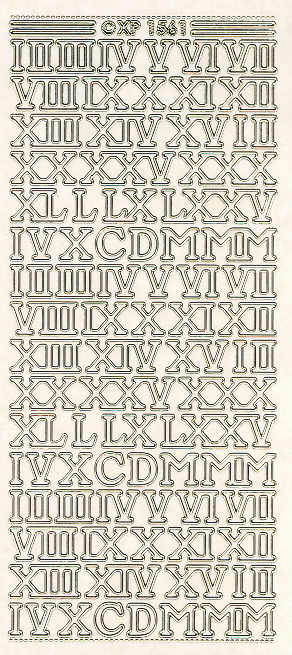 © XP 1561
I II III IV V VI VII
VIII IX X XI XII
XIII XIV XV I II
XX XXV XXX
XL L LX LXX V
IV X C D M MM
I II III IV V VI VII
VIII IX X XI XII
XIII XIV XV I II
XX XXV XXX
XL L LX LXX V
IV X C D M MM
I II III IV V VI VII
VIII IX X XI XII
XIII XIV XV I II
IV X C D M MM